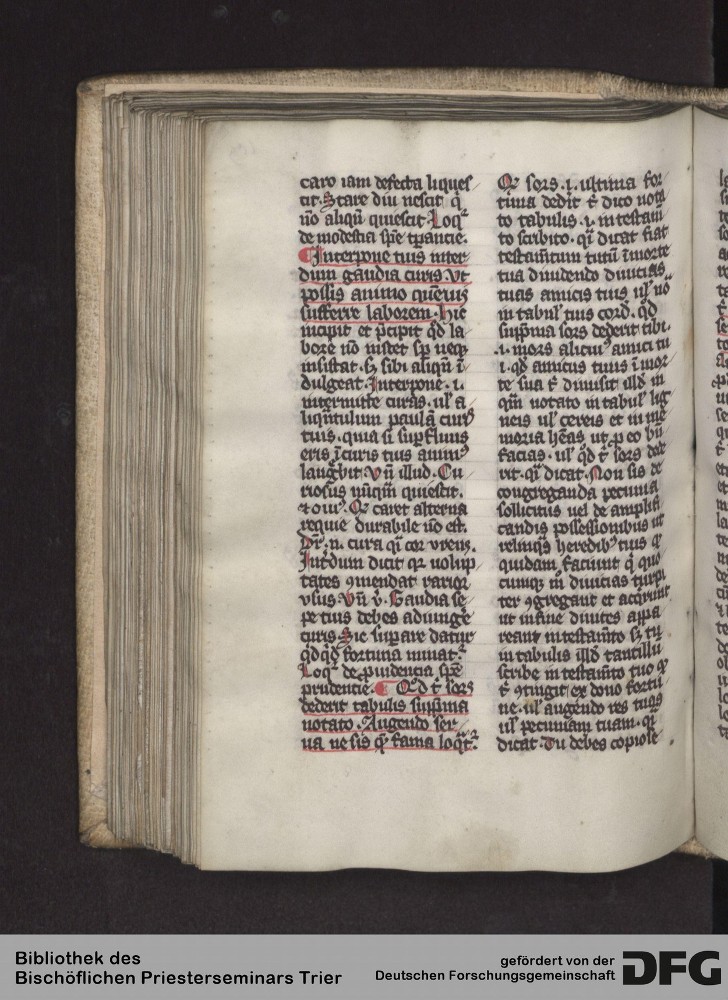 caro iam defecta liques
cit. Stare diu nescit q̄
nō aliqn̄ quiescit. Loq̄ᷣ
de modestia sp̄e tp̄ancie.
Interpone tuis inter
dum gaudia curis. Vt
possis animo quēuis
sufferre laborem. hic
incipit et p̄cipit q̄d la
bore nō
insistat. sꝫ sibi aliqn̄ ī
dulgeat. Interpone .i.
intermitte curas. ul' a
liqn̄tulum paulā
tuis. quia si supfluus
eris ī curis tuis
Vn̄ illud. Cu
riosus nūqm̄ quiescit.
Qꝛ caret alterna
requie durabile nō est.
cura q̄
Intdum dicit qꝛ volup
tates ꝯmendat rarior
vsus. Vn̄ Gaudia se
pe tuis debes adiunge
curis. Sic supare datur
q̄dq̄d fortuna minat᷑
Loq᷑ de pruidencia sp̄e
prudencie. Q̄d t̄ sors
dederit tabulis supp̄ma
notato. Augendo ser
ua ne sis q̄ fama loq᷑t᷑
Qꝛ sors .i. ultima for
tuna dedit t̄ dico nota
to tabulis .i. in testam̄
to scribito. q̄ dicat fiat
testam̄tum tuū ī morte
tua diuidendo diuicias
tuas amicis tuis ul' nō
in tabul' tuis cord. q̄d
supp̄ma sors dederit tibi.
.i. mors alicui⁹ amici tui
.i. q̄d amicus tuus ī mor
te sua t̄ dimisit illd̄ in
notato in tabul' lig
neis ul' cereis et in me
moria hēas ut ꝓ eo bn̄
facias. ul' q̄d t̄ sors dede
rit. q̄ dicat. Non sis de
congreganda pecunia
sollicitus uel de amplifi
candis possessionibus ut
relinq̄s heredib⁹ tuis q̄
quidam faciunt q̄ quo
cumqꝫ in diuicias turpi
ter ꝯgregant et acq̄runt
ut in fine diuites appa
reant in testam̄to sꝫ tu
in tabulis illd̄ tantillu
scribe in testam̄to tuo q̄
t̄ ꝯtingit ex dono fortu
ne. ul' augendo res tuas
ul' pecuniam tuam. q̄
dicat. Tu debes copiose
Bibliothek des
Bischöflichen Priesterseminars Trier
gefördert von der
Deutschen Forschungsgemeinschaft
DFG